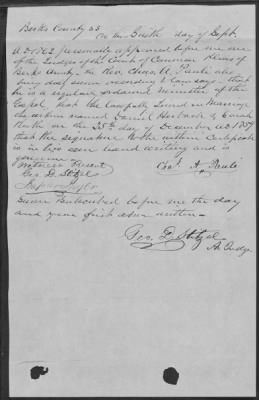 Berks County SS
On the Tenth day of Sept
A.D. 1862 personally appeared before me one
of the Judges of the Court of Common Pleas of
Berks County, the Rev. Chas. A. Pauli who
being duly sworn according to law says that
he is a regularly ordained minister of the
Gospel, that he lawfully Joined in Marriage
the within named Daniel Herbach & Sarah
on the 25th day of December AD 1857
that the signature to the within Certificate
is in his own hand writing and is
genuine
Witness Present
Geo. D. Stitzel
Chas. A. Pauli
Sworn & subscribed before me the day
and year first above written
Geo. D. Stitzel
A. Judge